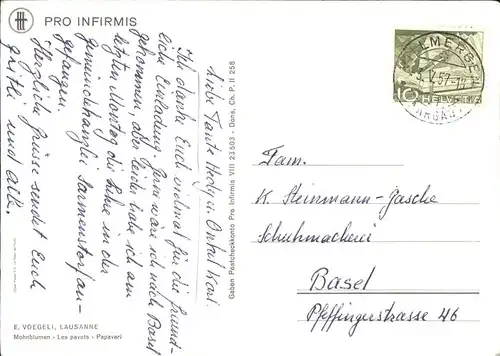 PRO INFIRMIS
Liebe Tante Hedi u. Onkel Karl
Ich danke Euch vielmal für die freund-
liche Einladung. Gern wäre ich nach Basel
gekommen, aber leider habe ich am
letzten Montag die Lehre in der
Gemeindekanzlei Sarmenstorf an-
gefangen.
Herzliche Grüsse sendet Euch
gritli und alle.
E. VOEGELI, LAUSANNE
Mohnblumen - Les pavots - Papaveri
Gaben Postcheckkonto Pro Infirmis VIII 23503 - Dons, Ch. P. II 258
HELVETIA
10
Fam.
K. Steinmann-Gasche
Schuhmacherei
Basel
Pfeffingerstrasse 46